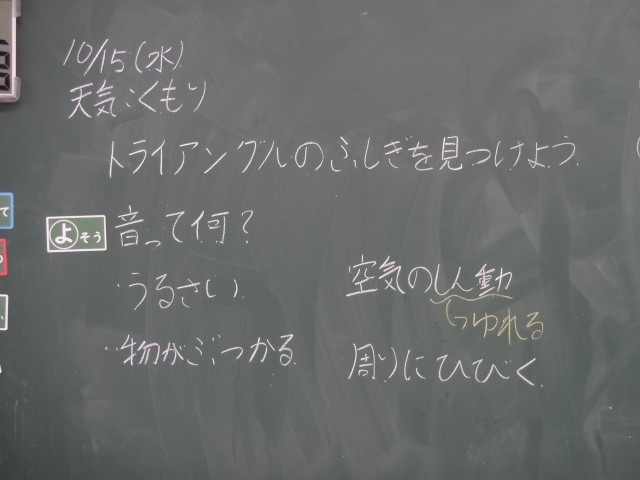 10/15(水)
天気:くもり
トライアングルのふしぎを見つけよう
よそう 音って何?
・うるさい
・物がぶつかる
空気のしん動
ゆれる
周りにひびく
て